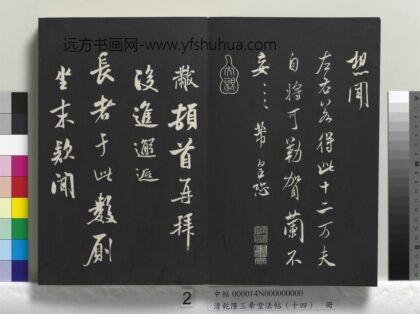 远方书画网-www.yfshuhua.com
想聞
左右若得此十二万夫
自將可勒賀蘭不
妄〻芾皇恐
黻頓首再拜
後進邂逅
長者于此數廁
坐末欵聞
2
中帖 000014N000000000
清乾隆三希堂法帖(十四) 冊